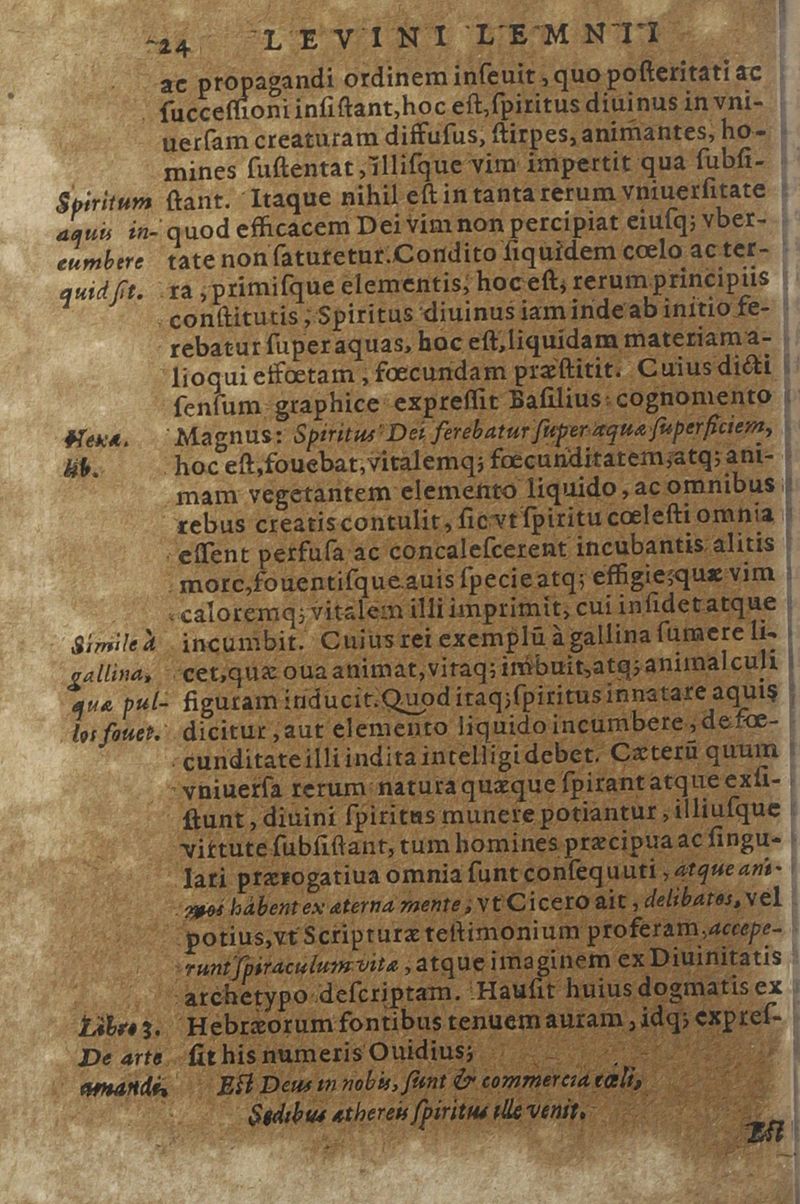 24 LEVINI LEMNII
ac propagandi ordinem inſeuit, quo poſteritati ac
ſucceſſioni inſiſtant, hoc eſt, ſpiritus diuinus in vni-
uerſam creaturam diffuſus, ſtirpes, animantes, ho-
mines ſuſtentat, illiſque vim impertit qua ſubſi-
Spiritum ſtant. Itaque nihil eſt in tanta rerum vniuerſitate
aquis in- quod efficacem Dei vim non percipiat eiuſq; vber-
cumbere tate non ſaturetur. Condito ſiquidem cœlo ac ter-
quid ſit. ra, primiſque elementis, hoc eſt, rerum principiis
conſtitutis, Spiritus diuinus iam inde ab initio fe-
rebatur ſuper aquas, hoc eſt, liquidam materiam a-
lioqui effœtam, fœcundam præſtitit. Cuius dicti
ſenſum graphice expreſſit Baſilius cognomento
Hexa. Magnus: Spiritus Dei ferebatur ſuper aquæ ſuperficiem,
lib. hoc eſt, fouebat, vitalemq; fœcunditatem, atq; ani-
mam vegetantem elemento liquido, ac omnibus
rebus creatis contulit, ſic vt ſpiritu cœleſti omnia
eſſent perfuſa ac concaleſcerent incubantis alitis
more, fouentiſque auis ſpecie atq; effigie, quæ vim
caloremq; vitalem illi imprimit, cui inſidet atque
Simile à incumbit. Cuius rei exemplū à gallina ſumere li-
gallina, cet, quæ oua animat, vitaq; imbuit, atq; animalculi
quæ pul- figuram inducit. Quod itaq; ſpiritus innatare aquis
los fouet. dicitur, aut elemento liquido incumbere, de fœ-
cunditate illi indita intelligi debet. Cæterū quum
vniuerſa rerum natura quæque ſpirant atque exſi-
ſtunt, diuini ſpiritus munere potiantur, illiuſque
virtute ſubſiſtant, tum homines præcipua ac ſingu-
lari prærogatiua omnia ſunt conſequuti, atque ani-
mos habent ex æterna mente, vt Cicero ait, delibatos, vel
potius, vt Scripturæ teſtimonium proferam, accepe-
runt ſpiraculum vitæ, atque imaginem ex Diuinitatis
archetypo deſcriptam. Hauſit huius dogmatis ex
Libro 3. Hebræorum fontibus tenuem auram, idq; expreſ-
De arte ſit his numeris Ouidius;
amandi. Eſt Deus in nobis, ſunt & commercia cœli,
Sedibus æthereis ſpiritus ille venit.
Eſt